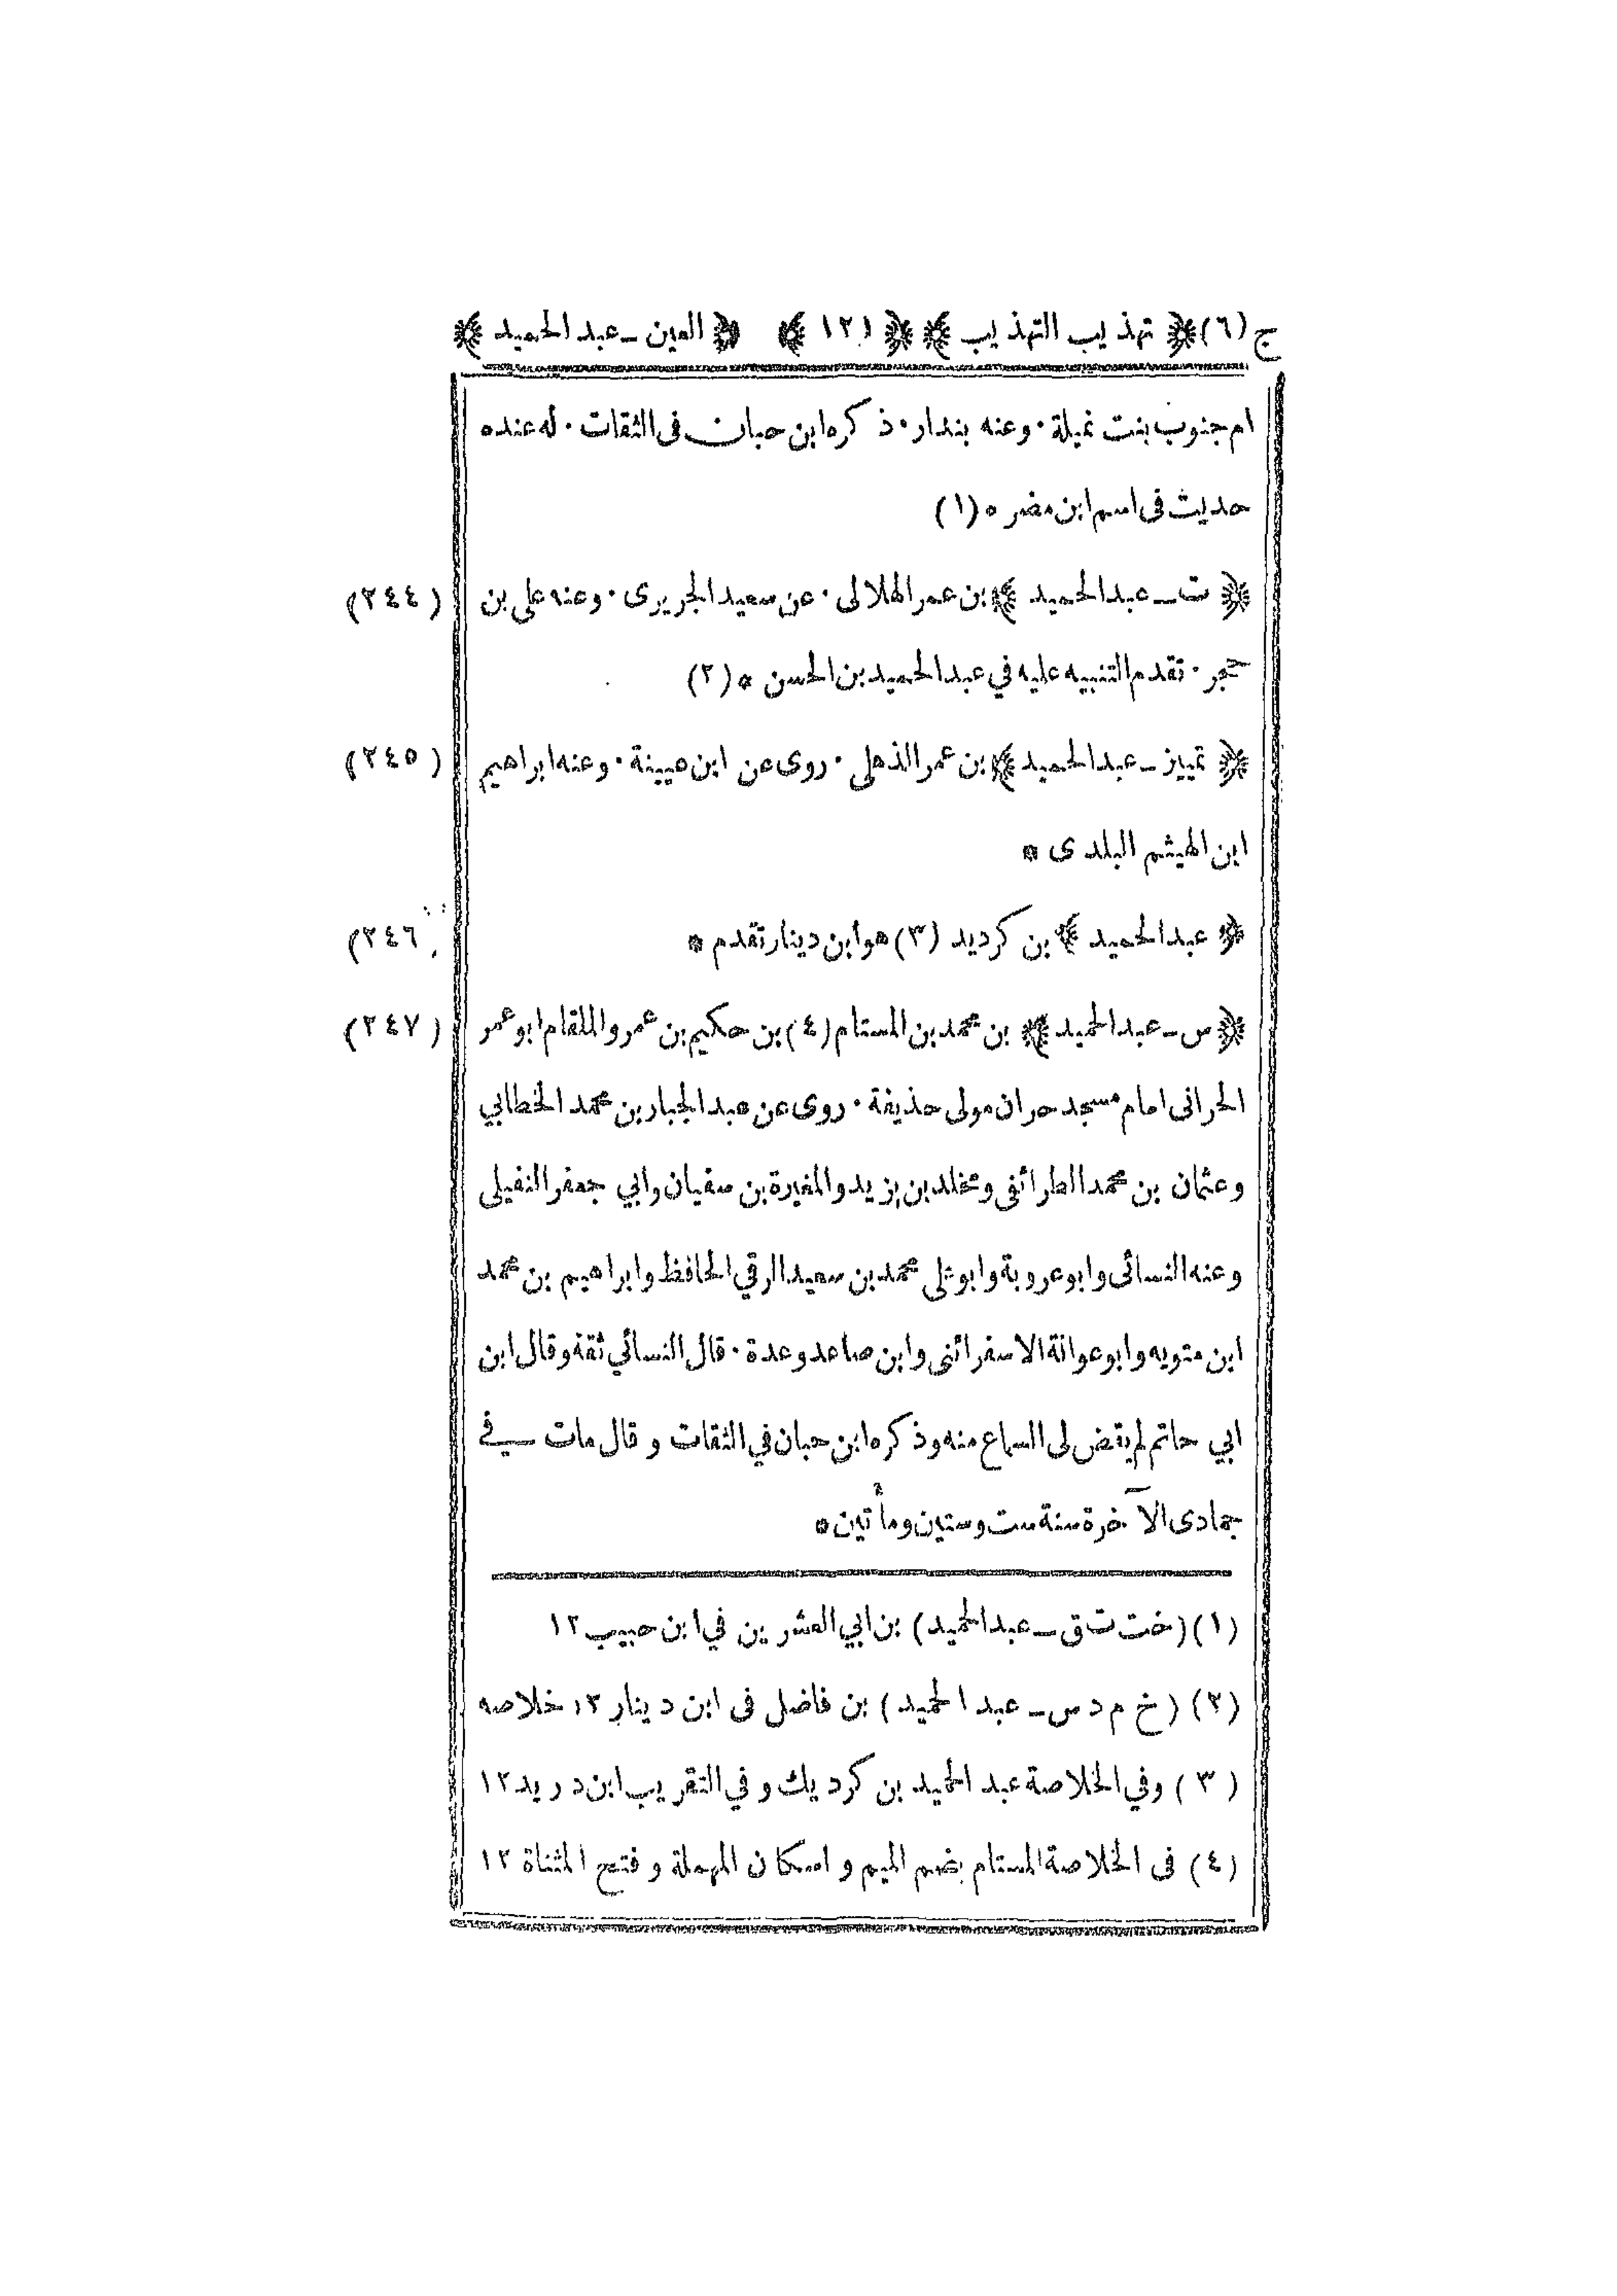 ج (٦) ﴿ تهذيب التهذيب ﴾ ﴿ ١٢١ ﴾ ﴿ العين ـ عبد الحميد ﴾
ام جنوب بنت نميلة · وعنه بندار · ذكره ابن حبان في الثقات · له عنده
حديث في اسم ابن مضر * (١)
﴿ ت ـ عبد الحميد ﴾ بن عمر الهلالى · عن سعيد الجريرى · وعنه على بن (٢٤٤)
حجر · تقدم التنبيه عليه في عبد الحميد بن الحسن * (٢)
﴿ تمييز ـ عبد الحميد ﴾ بن عمر الذهلى · روى عن ابن عيينة · وعنه ابراهيم (٢٤٥)
ابن الهيثم البلدى *
﴿ عبد الحميد ﴾ بن كرديد (٣) هو ابن دينار تقدم * (٢٤٦)
﴿ س ـ عبد الحميد ﴾ بن محمد بن المستام (٤) بن حكيم بن عمرو الملقام ابو عمر (٢٤٧)
الحرانى امام مسجد حران مولى حذيفة · روى عن عبد الجبار بن محمد الخطابي
وعثمان بن محمد الطرائفى ومخلد بن يزيد والمغيرة بن سفيان وابي جعفر النفيلى
وعنه النسائى وابو عروبة وابو على محمد بن سعيد الرقي الحافظ وابراهيم بن محمد
ابن متويه وابو عوانة الاسفرائنى وابن صاعد وعدة · قال النسائي ثقة وقال ابن
ابي حاتم لم يقض لى السماع منه وذكره ابن حبان في الثقات وقال مات في
جمادى الآخرة سنة ست وستين ومأتين *
(١) (خت ت ق ـ عبد الحميد) بن ابي العشرين في ابن حبيب ١٢
(٢) (خ م د س ـ عبد الحميد) بن فاضل فى ابن دينار ١٢ خلاصه
(٣) وفي الخلاصة عبد الحميد بن كرديك وفي التقريب ابن دريد ١٢
(٤) فى الخلاصة المستام بضم الميم واسكان المهملة وفتح المثناة ١٢